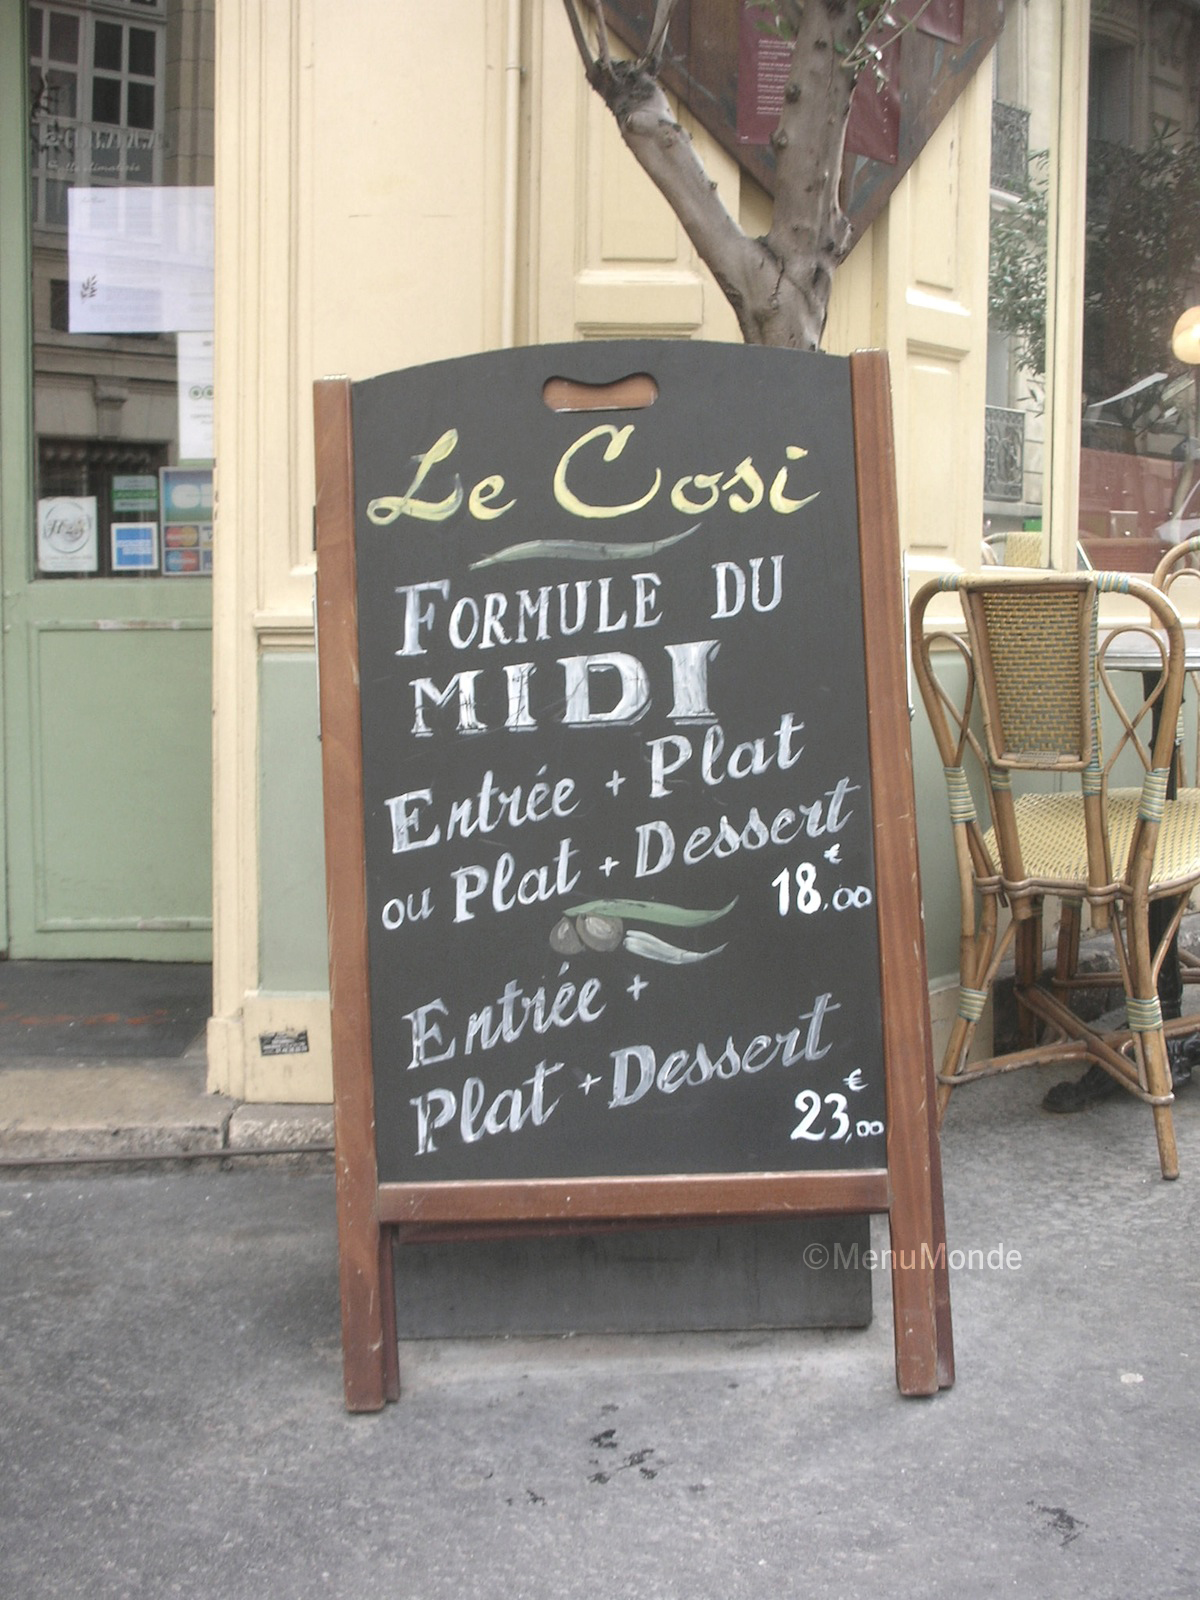 Le Cosi
FORMULE DU
MIDI
Entrée + Plat
ou Plat + Dessert
18,00€
Entrée +
Plat + Dessert
23,00€
©MenuMonde